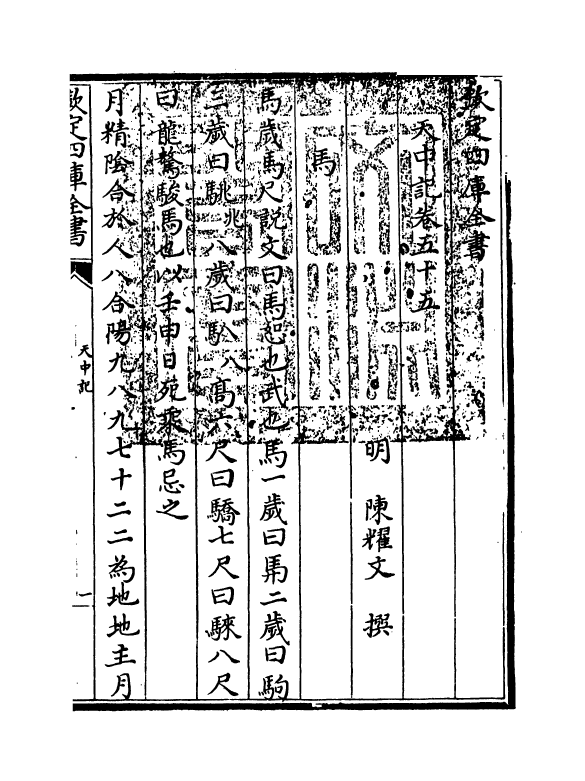 欽定四庫全書
天中記卷五十五
明 陳耀文 撰
馬
馬歲馬尺説文曰馬怒也武也馬一歲曰馬二歲曰駒
三歲曰駣兆八歲曰馱八高六尺曰驕七尺曰騋八尺
曰龍驁駿馬也以壬申日死乘馬忌之
月精陰合於人八合陽九八九七十二二為地地主月
欽定四庫全書
天中記
一